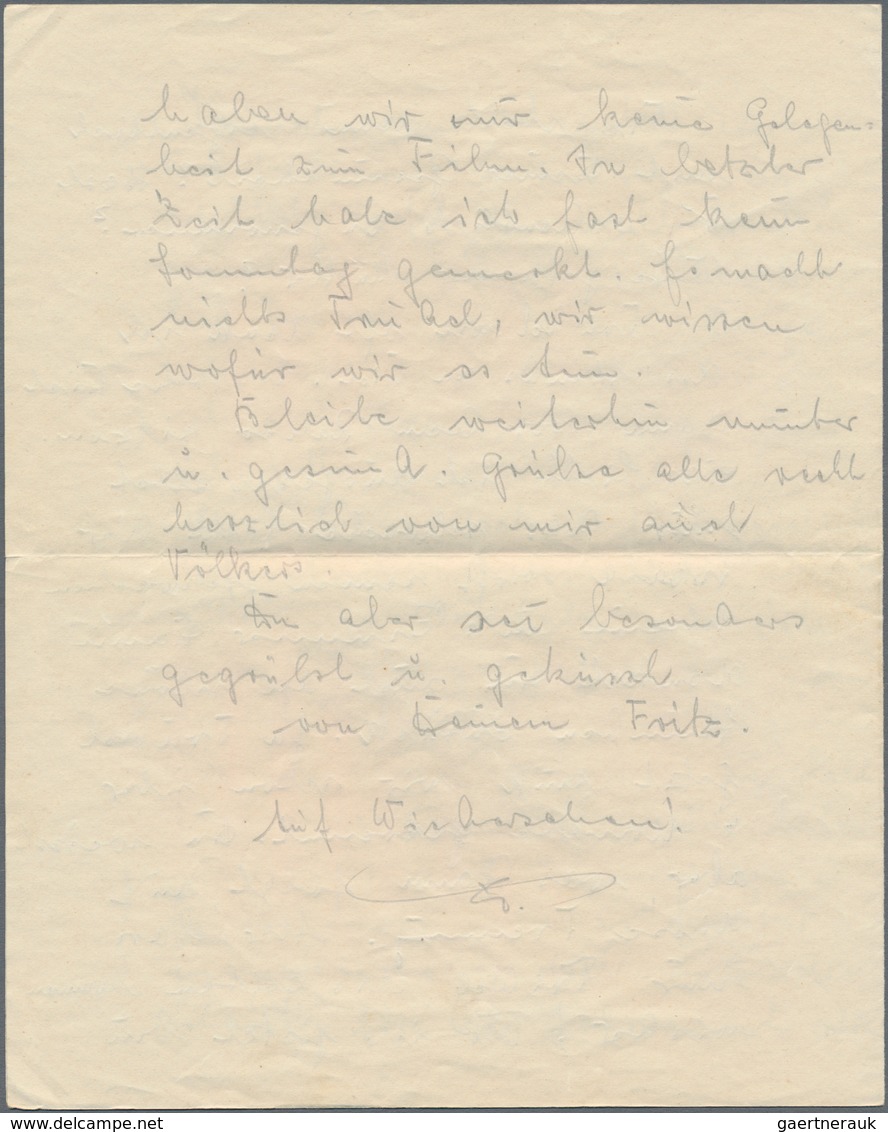 haben wir nur keine Gelegen=
heit zum Film. In letzter
Zeit habe ich fast kein
Sonntag gemerkt. Es macht
nichts Trudel, wir wissen
wofür wir es tun.
Bleibe weiterhin munter
u. gesund. Grüße alle recht
herzlich von mir auch
Völkers.
Du aber sei besonders
gegrüßt u. geküsst
von Deinem Fritz.
Auf Wiedersehen!
www.delcampe.net
gaertnerauk